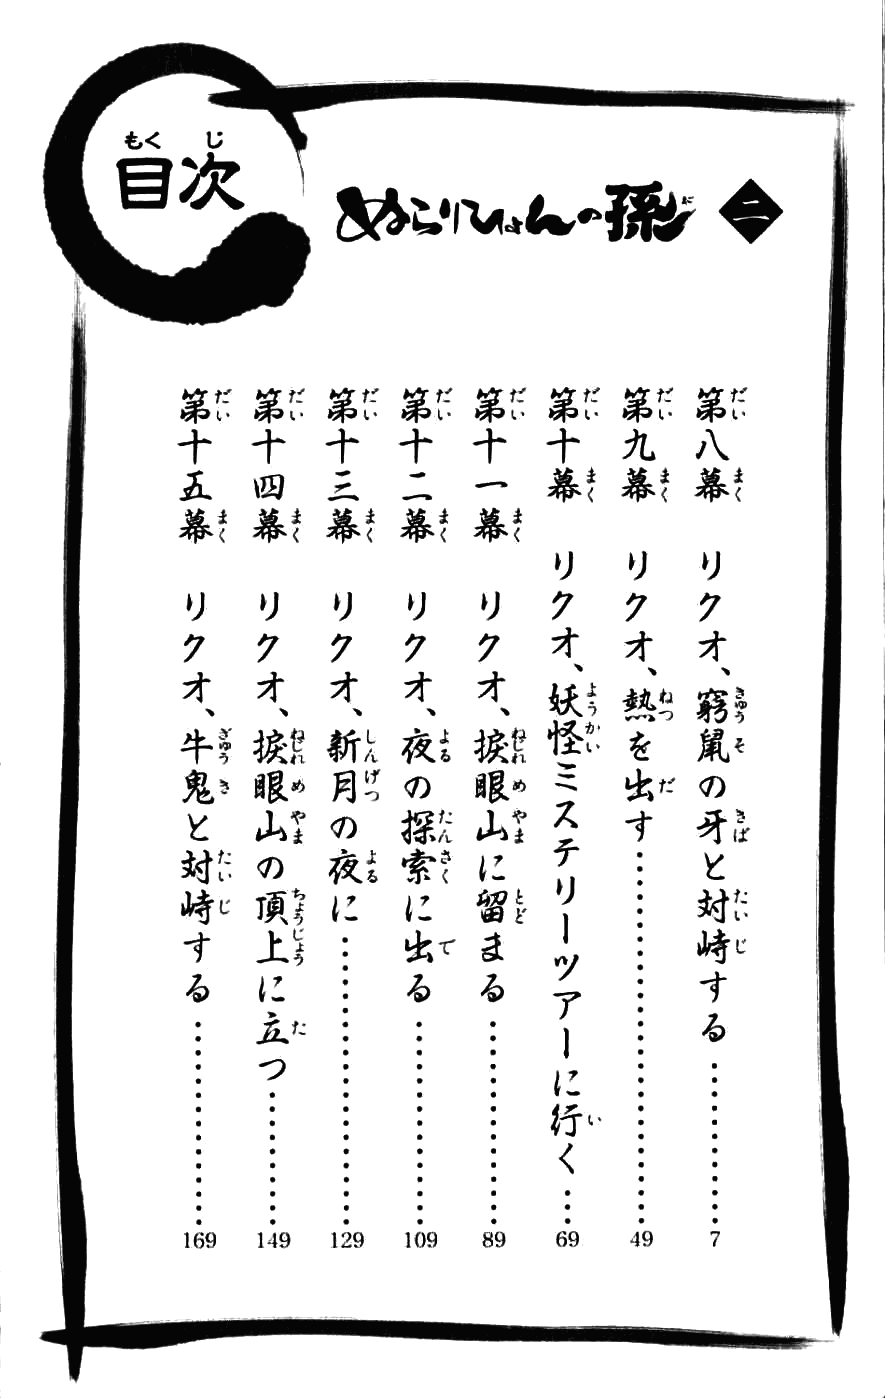 目次
ぬらりひょんの孫 二
第八幕 リクオ、窮鼠の牙と対峙する…………7
第九幕 リクオ、熱を出す…………49
第十幕 リクオ、妖怪ミステリーツアーに行く…69
第十一幕 リクオ、捩眼山に留まる…………89
第十二幕 リクオ、夜の探索に出る…………109
第十三幕 リクオ、新月の夜に…………129
第十四幕 リクオ、捩眼山の頂上に立つ…………149
第十五幕 リクオ、牛鬼と対峙する…………169